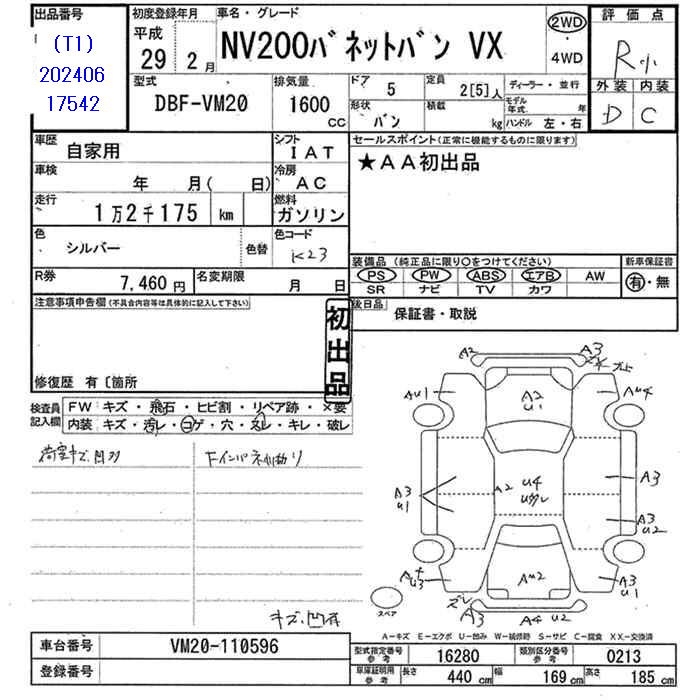 出品番号
(T1)
202406
17542
初度登録年月
平成
29 2月
車名・グレード
NV200バネットバン VX
2WD
・
4WD
評価点
R小
外装 内装
D C
型式
DBF-VM20
排気量
1600 CC
ドア 5
定員 2[5]人
ディーラー・並行
形状 バン
積載 kg
モデル年式 年
ハンドル 左・右
車歴 自家用
シフト IAT
セールスポイント(正常に機能するものに限ります)
★AA初出品
車検 年 月( 日)
冷房 AC
走行 1万2千175 km
燃料 ガソリン
色 シルバー 色替
色コード K23
装備品 (純正品に限り○をつけてください)
新車保証書
PS PW ABS エアB AW
SR ナビ TV カワ
有・無
R券 7,460円
名変期限 月 日
後日品 保証書・取説
注意事項申告欄(不具合内容等は具体的に記入して下さい)
初出品
修復歴 有〔箇所
検査員記入欄
FW キズ・飛石・ヒビ割・リペア跡・×要
内装 キズ・汚レ・コゲ・穴・スレ・キレ・破レ
荷室キズ凹ガ
Fインパネ小擦り
キズ、凹有
A2
A3
AU1
A2
U1
AU4
U4
A2
A3
U1
A3
A3
U2
AU2
A3
U1
ズレ
A3
A4 U2
スペア
A-キズ E-エクボ U-凹み W-補修跡 S-サビ C-腐食 XX-交換済
車台番号 VM20-110596
登録番号
型式指定番号 参考 16280
類別区分番号 参考 0213
車庫証明用 参考 長さ 440 cm 幅 169 cm 高さ 185 cm